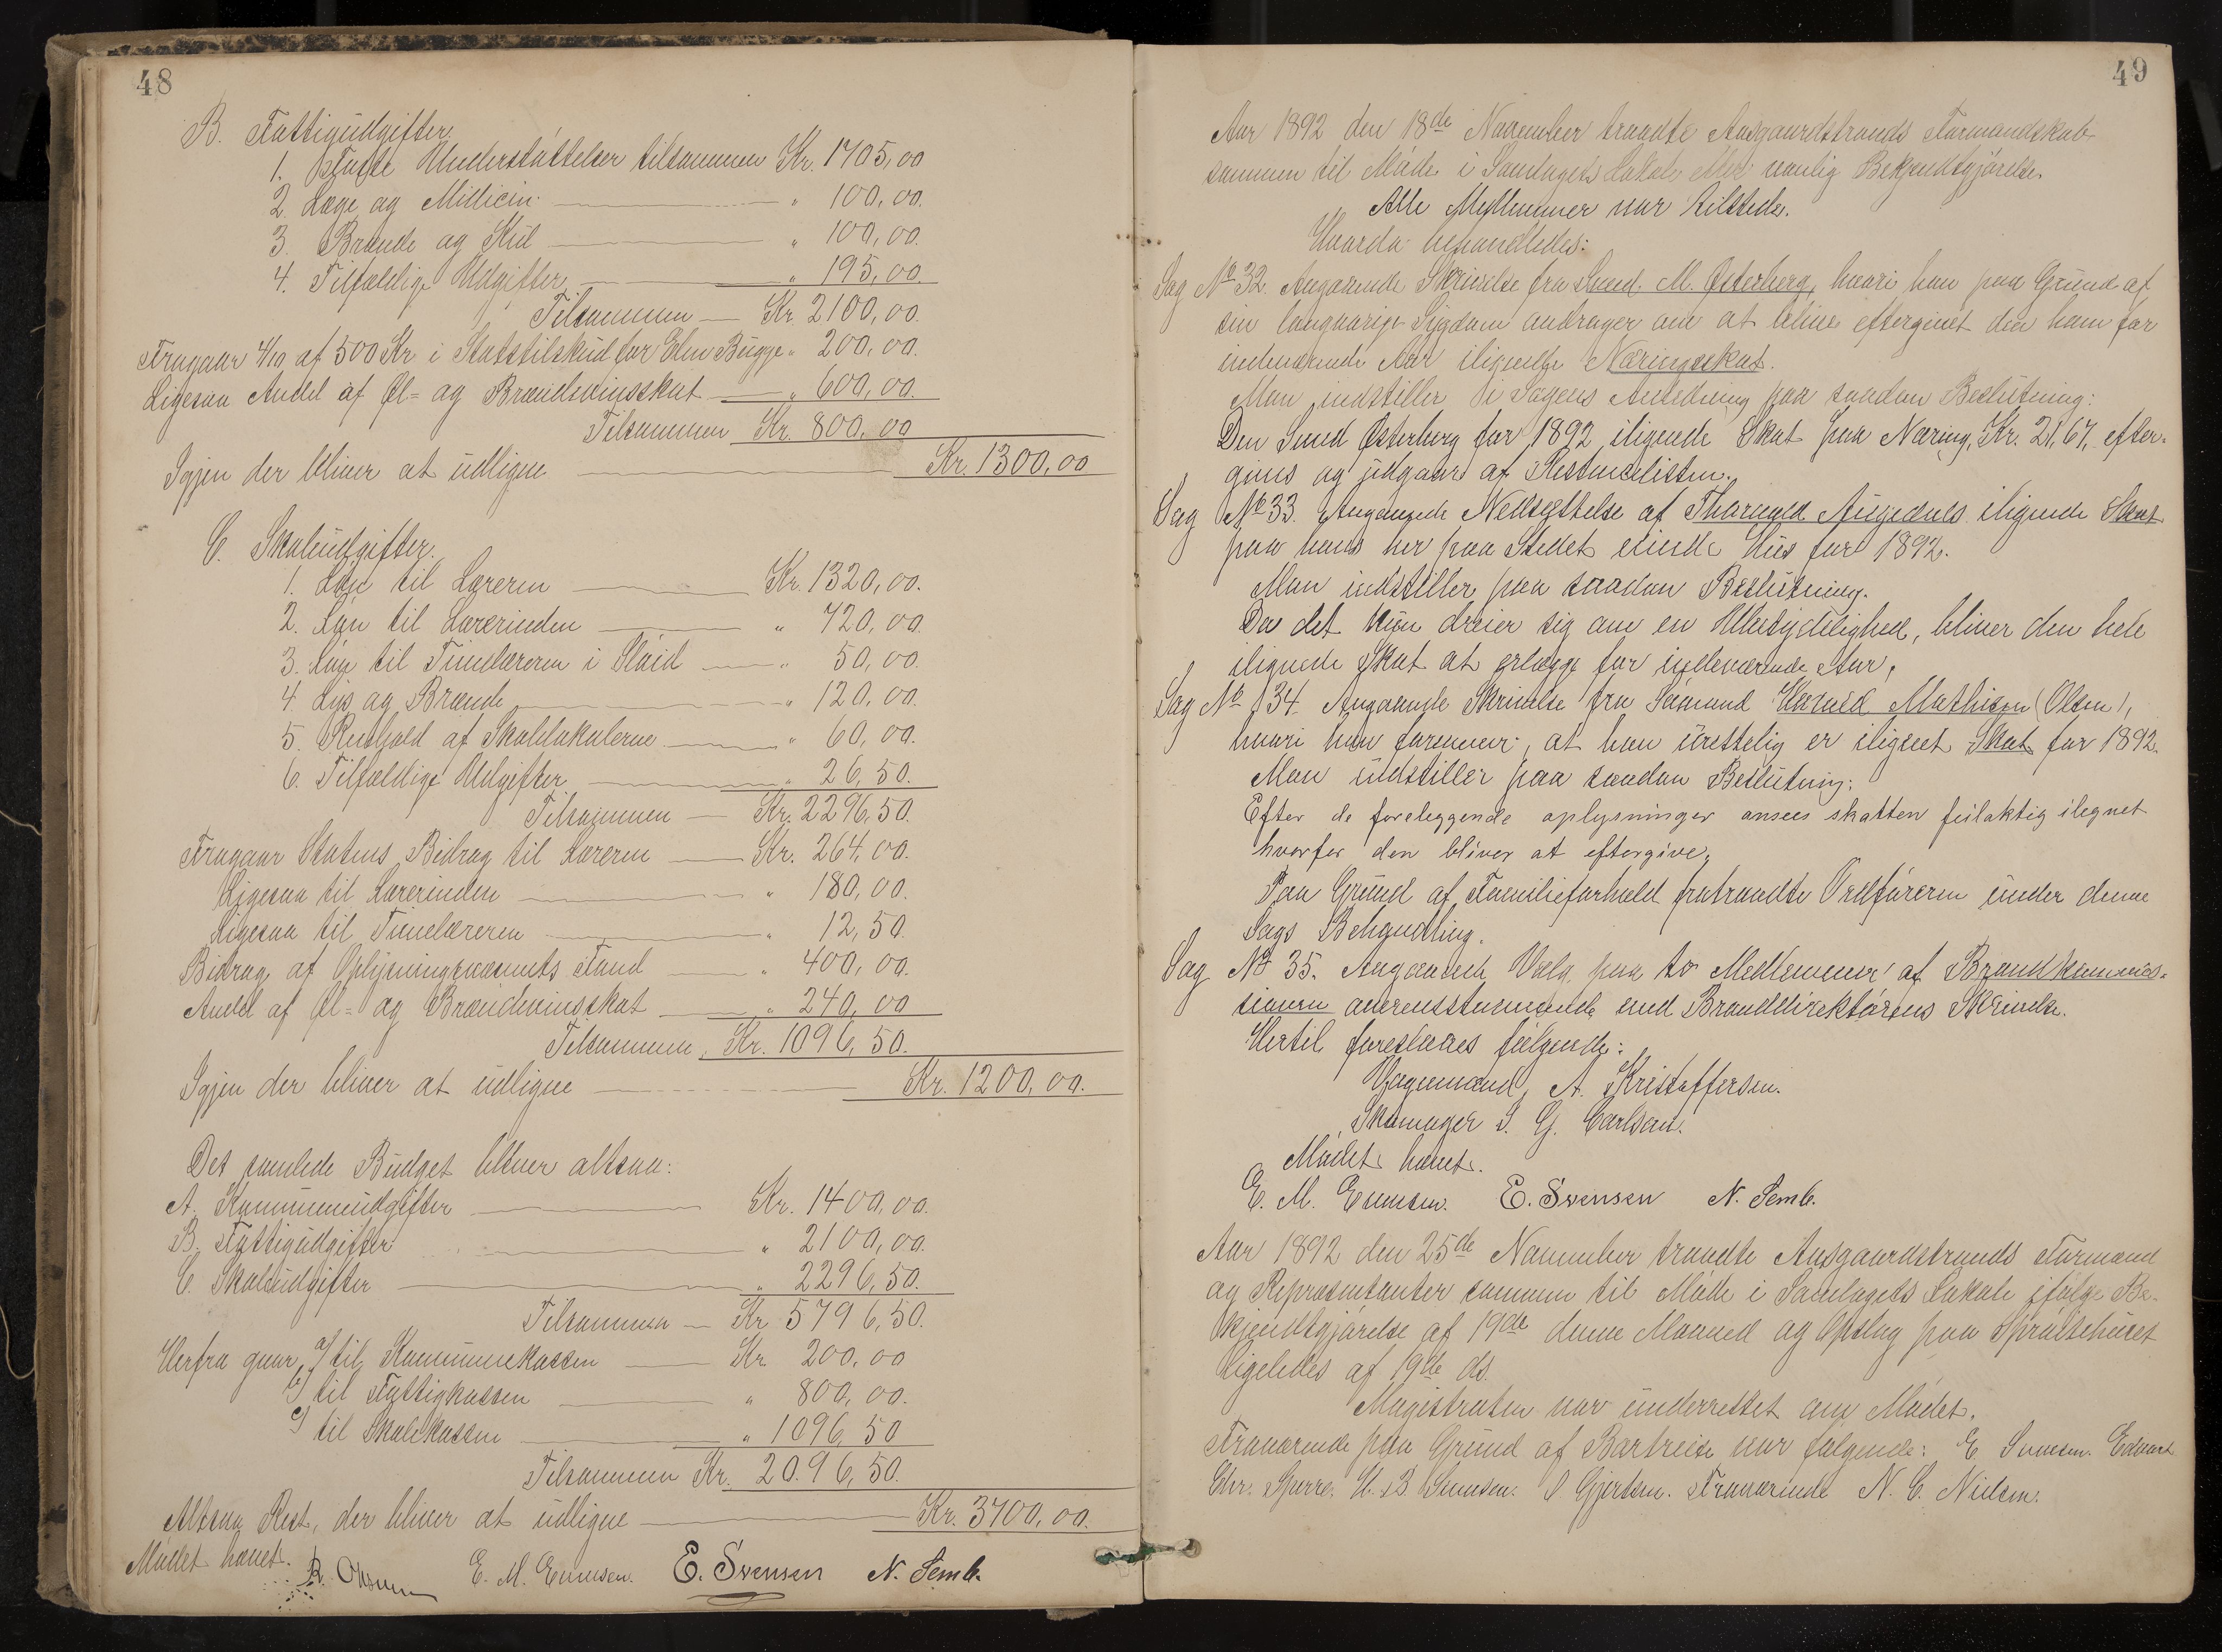 48
B. Fattigudgifter.
1. Faste Understøttelser tilsammen Kr. 1705,00
2. Læge og Medicin " 100,00.
3. Brænde og Kul " 100,00.
4. Tilfældige Udgifter " 195,00.
Tilsammen Kr. 2100,00.
Fragaar 4/10 af 500 Kr i Statstilskud for Elen Bugge " 200,00.
Ligesaa Andel af Øl- og Brændevinsskat " 600,00.
Tilsammen Kr. 800,00
Igjen der bliver at udligne Kr. 1300,00
C. Skoleudgifter.
1. Løn til Læreren Kr. 1320,00.
2. Løn til Lærerinden " 720,00.
3. Løn til Timelæreren i Sløid " 50,00.
4. Lys og Brænde " 120,00.
5. Renhold af Skolelokalerne " 60,00.
6. Tilfældige Udgifter " 26,50.
Tilsammen Kr. 2296,50.
Fragaar Statens Bidrag til Læreren Kr. 264,00.
Ligesaa til Lærerinden " 180,00.
Ligesaa til Timelæreren " 12,50.
Bidrag af Oplysningsvæsenets Fond " 400,00.
Andel af Øl- og Brændevinsskat " 240,00
Tilsammen Kr. 1096,50.
Igjen der bliver at udligne Kr. 1200,00.
Det samlede Budget bliver altsaa:
A. Kommuneudgifter Kr. 1400,00.
B. Fattigudgifter " 2100,00.
C. Skoleudgifter " 2296,50.
Tilsammen Kr 5796,50.
Herfra gaar, a) til Kommunekassen Kr. 200,00
b) til Fattigkassen " 800,00.
c) til Skolekassen " 1096,50
Tilsammen Kr. 2096,50.
Altsaa Rest, der bliver at udligne Kr. 3700,00.
Mødet hævet.
E. M. Evensen. E. Svensen N. Semb.
49
Aar 1892 den 18de November traadte Aasgaardstrands Formandskab
sammen til Møde i Samlagets Lokale efter vanlig Bekjendtgjørelse.
Alle Medlemmer var tilstede.
Hvorda behandledes:
Sag No 32. Angaaende Skrivelse fra Smed M. Østerberg, hvori han paa Grund af
sin langvarige Sygdom andrager om at blive eftergivet den ham for
indeværende Aar ilignede Næringsskat.
Man indstiller i Sagens Anledning paa saadan Beslutning:
Den Smed Østerberg for 1892 ilignede Skat paa Næring, Kr. 21,67, efter-
gives og udgaar af Restancelisten.
Sag No 33. Angaaende Nedsættelse af Thorvald Augedals ilignede Skat
paa hans her paa Stedet eiende Hus for 1892.
Man indstiller paa saadan Beslutning.
Da det kun dreier sig om en Ubetydelighed, bliver den hele
ilignede Skat at erlægge for indeværende Aar.
Sag No 34. Angaaende Skrivelse fra Sømand Harald Mathisen (Olsen),
hvori han formener, at han urettelig er ilignet Skat for 1892.
Man indstiller paa saadan Beslutning:
Efter de foreleggende oplysninger ansees skatten feilaktig ilegnet
hvorfor den bliver at eftergive.
Paa Grund af Familieforhold fratraadte Ordføreren under denne
Sags Behandling.
Sag No 35. Angaaende Valg paa to Medlemmer af Brandkommis-
sionen overensstemmende med Branddirektørens Skrivelse.
Hertil foreslaaes følgende:
Vognmand A. Kristoffersen.
Skomager S. G. Carlsen.
Mødet hævet.
E. M. Evensen. E. Svensen N. Semb.
Aar 1892 den 25de November traadte Aasgaardstrands Formænd
og Repræsentanter sammen til Møde i Samlagets Lokale ifølge Be-
kjendtgjørelse af 19de denne Maaned og Opslag paa Sprøitehuset
ligeledes af 19de ds.
Magistraten var underrettet om Mødet.
Fraværende paa Grund af Bortreise var følgende: E. Svensen. Edvard
Chr. Sperre. H. B. Svensen. O. Gjertsen. Fraværende N. C. Nielsen.